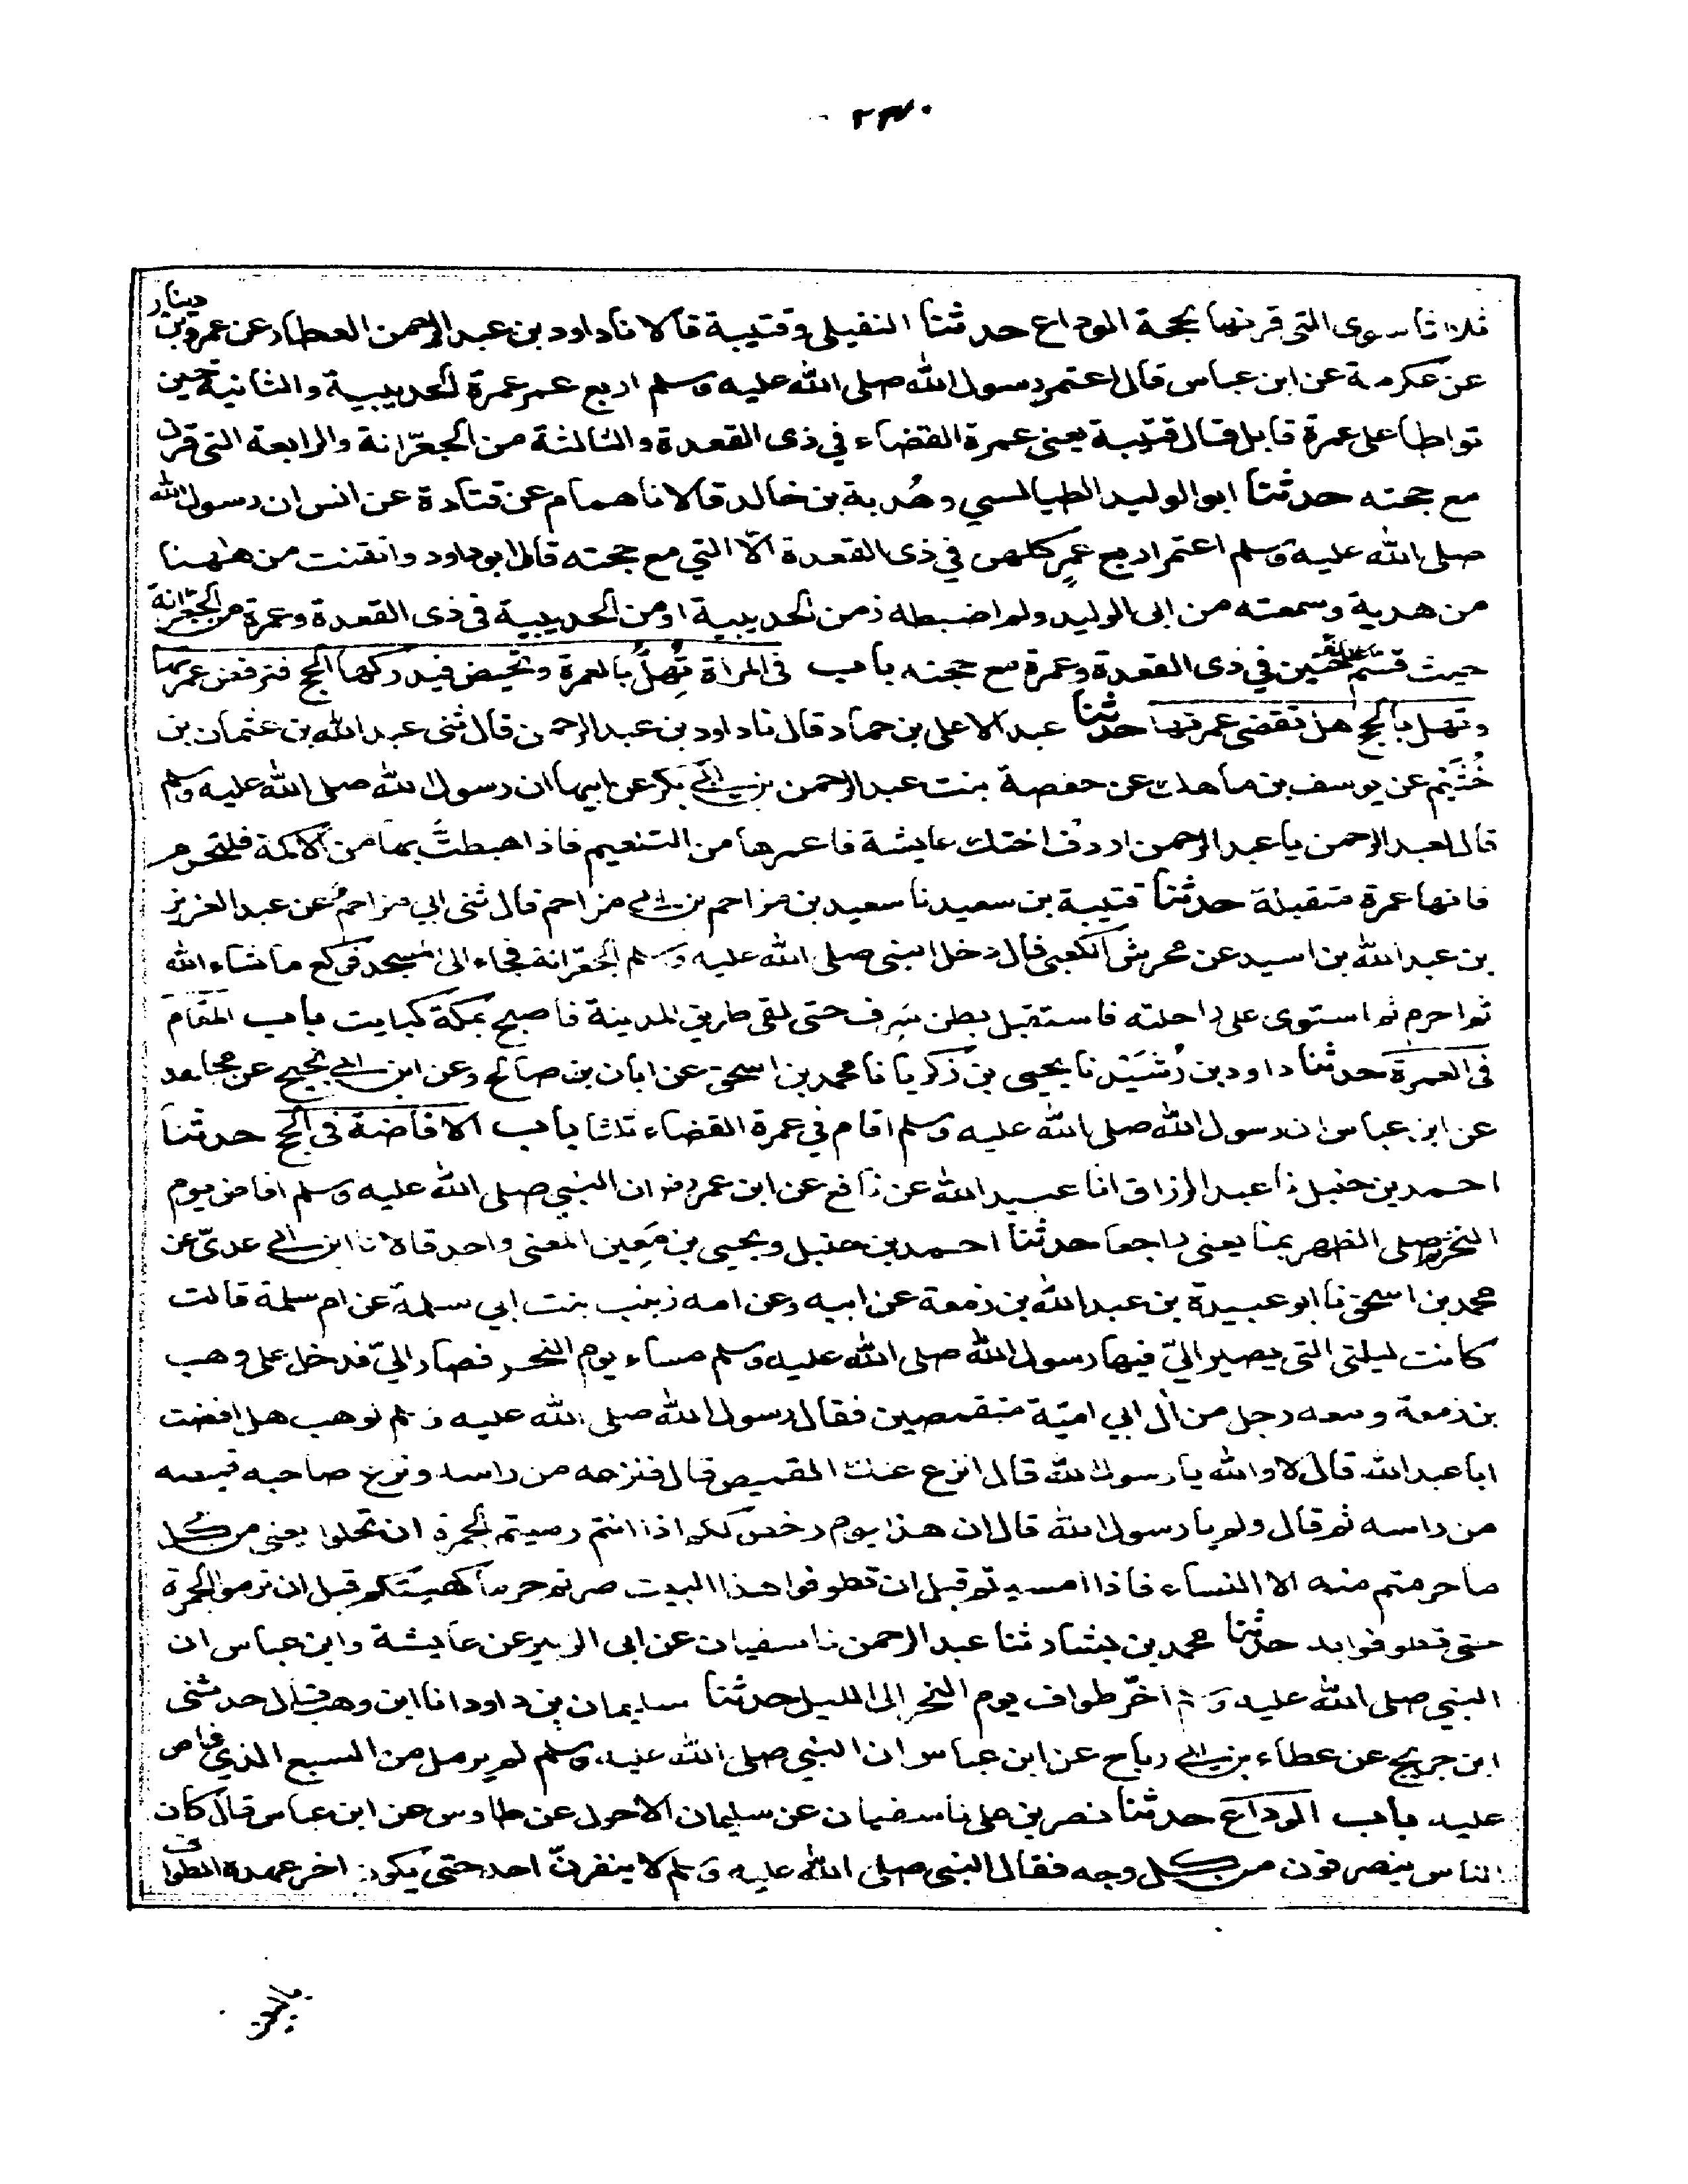 ٢٣٧٠
ثلاثا سوى التى قرنها بحجة الوداع حدثنا النفيلى وقتيبة قالا نا داود بن عبد الرحمن العطار عن عمرو بن دينار
عن عكرمة عن ابن عباس قال اعتمر رسول الله صلى الله عليه وسلم اربع عمر عمرة الحديبية والثانية حين
تواطا على عمرة قابل قال قتيبة يعنى عمرة القضاء في ذى القعدة والثالثة من الجعرّانة والرابعة التى قرن
مع حجته حدثنا ابو الوليد الطيالسي وهُدبة بن خالد قالا نا همام عن قتادة عن انس ان رسول الله
صلى الله عليه وسلم اعتمر اربع عمرٍ كلهن في ذى القعدة الّا التي مع حجته قال ابو داود واتقنت من هٰهنا
من هدبة وسمعته من ابى الوليد ولم اضبطه زمن الحديبية او من الحديبية فى ذى القعدة وعمرة من الجعرانة
حيث قسم غنائم حنين في ذى القعدة وعمرة مع حجته باب فى المراة تُهِلُّ بالعمرة وتحيض فيدركها الحج فترفض عمرتها
وتهل بالحج هل تقضى عمرتها حدثنا عبد الاعلى بن حماد قال نا داود بن عبد الرحمن قال ثنى عبد الله بن عثمان بن
خُثَيْم عن يوسف بن ماهك عن حفصة بنت عبد الرحمن بن ابي بكر عن ابيها ان رسول الله صلى الله عليه وسلم
قال لعبد الرحمن يا عبد الرحمن اردف اختك عايشة فاعمرها من التنعيم فاذا هبطتَّ بها من الاكمة فلتحرم
فانها عمرة متقبلة حدثنا قتيبة بن سعيد نا سعيد بن مزاحم بن ابي مزاحم قال ثنى ابي مزاحمُ عن عبد العزيز
بن عبد الله بن اسيد عن محرش الكعبى قال دخل النبى صلى الله عليه وسلم الجعرّانة فجاء الى المسجد فركع ما شاء الله
ثم احرم ثم استوى على راحلته فاستقبل بطن سَرِف حتى لقى طريق المدينة فاصبح بمكة كبايت باب المقام
فى العمرة حدثنا داود بن رُشَيْد نا يحيى بن زكريا نا محمد بن اسحق عن ابان بن صالح وعن ابن ابي نجيح عن مجاهد
عن ابن عباس ان رسول الله صلى الله عليه وسلم اقام في عمرة القضاء ثلثا باب الافاضة فى الحج حدثنا
احمد بن حنبل نا عبد الرزاق انا عبيد الله عن نافع عن ابن عمر ان النبي صلى الله عليه وسلم افاض يوم
النحر ثم صلى الظهر بمنا يعنى راجعا حدثنا احمد بن حنبل ويحيى بن مَعِين المعنى واحد قالا نا ابن ابي عدىّ عن
محمد بن اسحق نا ابو عبيدة بن عبد الله بن زمعة عن ابيه وعن امه زينب بنت ابي سلمة عن ام سلمة قالت
كانت ليلتى التى يصير اليّ فيها رسول الله صلى الله عليه وسلم مساء يوم النحر فصار اليّ فدخل على وهب
بن زمعة ومعه رجل من اٰل ابي اميّة متقمصين فقال رسول الله صلى الله عليه وسلم لوهب هل افضت
ابا عبد الله قال لا والله يا رسول الله قال انزع عنك القميص قال فنزعه من راسه ونزع صاحبه قميصه
من راسه ثم قال ولم يا رسول الله قال ان هذا يوم رخص لكم اذا انتم رميتم الجمرة ان تحلوا يعنى من كل
ما حرمتم منه الا النساء فاذا امسيتم قبل ان تطوفوا هذا البيت صرتم حرما كهيئتكم قبل ان ترموا الجمرة
حتى تطوفوا به حدثنا محمد بن بشار ثنا عبد الرحمن نا سفيان عن ابى الزبير عن عايشة وابن عباس ان
النبي صلى الله عليه وسلم اخّر طواف يوم النحر الى الليل حدثنا سليمان بن داود انا ابن وهب قال حدثنى
ابن جريج عن عطاء بن ابي رباح عن ابن عباس ان النبي صلى الله عليه وسلم لم يرمل من السبع الذي افاض
عليه باب الوداع حدثنا نصر بن على نا سفيان عن سليمان الاحول عن طاوس عن ابن عباس قال كان
الناس ينصرفون من كل وجه فقال النبى صلى الله عليه وسلم لا ينفرنّ احد حتى يكون اخر عهده الطواف
بالبيت